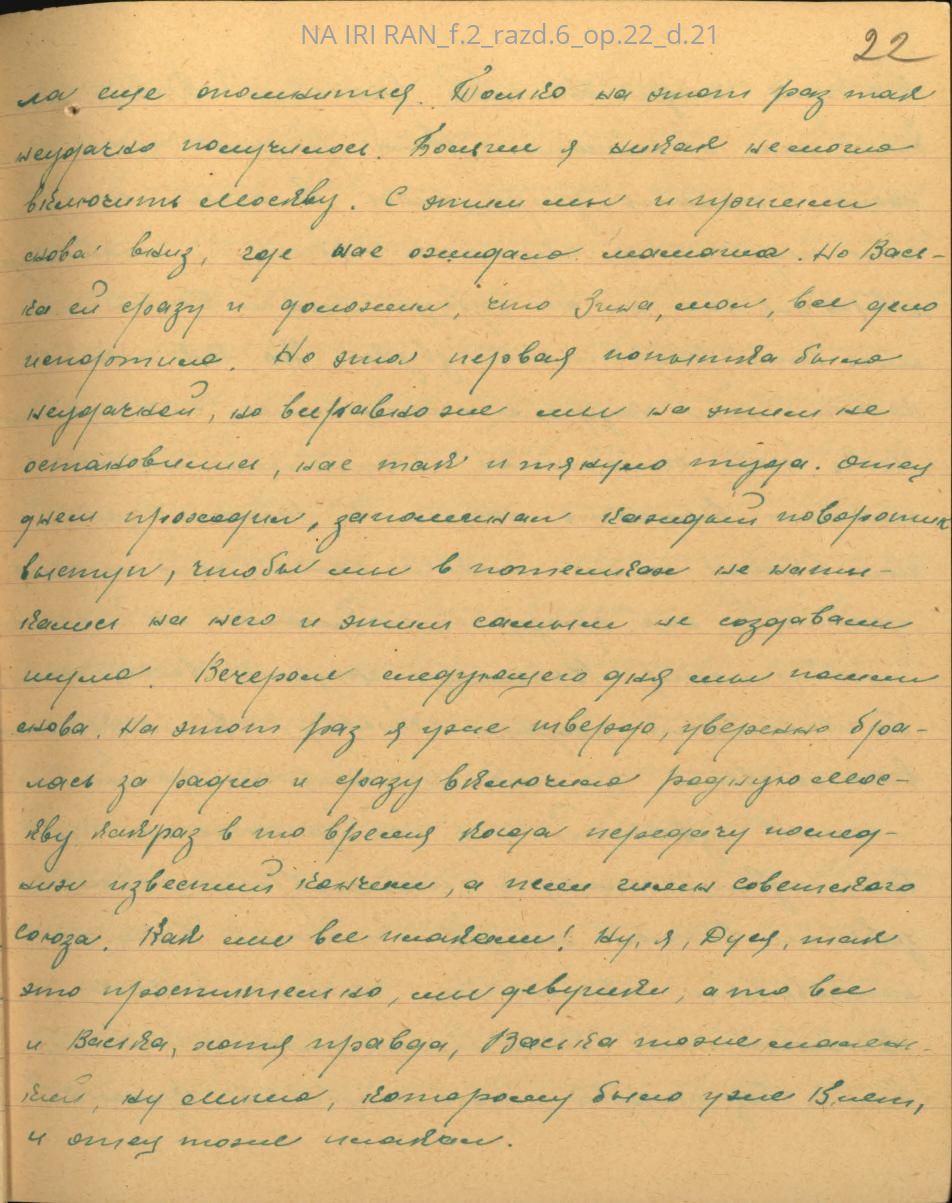 NA IRI RAN_f.2_razd.6_op.22_d.21
22
ла еще опомниться. Только на этот раз так
неудачно получилось. Больш я никак не могла
включить Москву. С этим мы и пришли
снова вниз, где нас ожидала мамаша. Но Вась-
ка ей сразу и доложил, что Зина, мол, все дело
испортила. Но эта первая попытка была
неудачней, но всеравно же мы на этим не
остановились, нас так и тянуло туда. Отец
днем проходил, запоминал каждый поворотик
выступ, чтобы мы в потемках не наты-
кались на него и этим самым не создавали
шума. Вечером следующего дня мы пошли
снова. На этот раз я уже твердо, уверенно бра-
лась за радио и сразу включила родную Мос-
кву какраз в то время когда передачу послед-
них известий кончили, а пели гимн советского
союза. Как мы все плакали! Ну, я, Дуся, так
это простительно, мы девушки, а то все
и Васька, хотя правда, Васька тоже малень-
кий, ну Миша, которому было уже лет,
и отец тоже плакал.